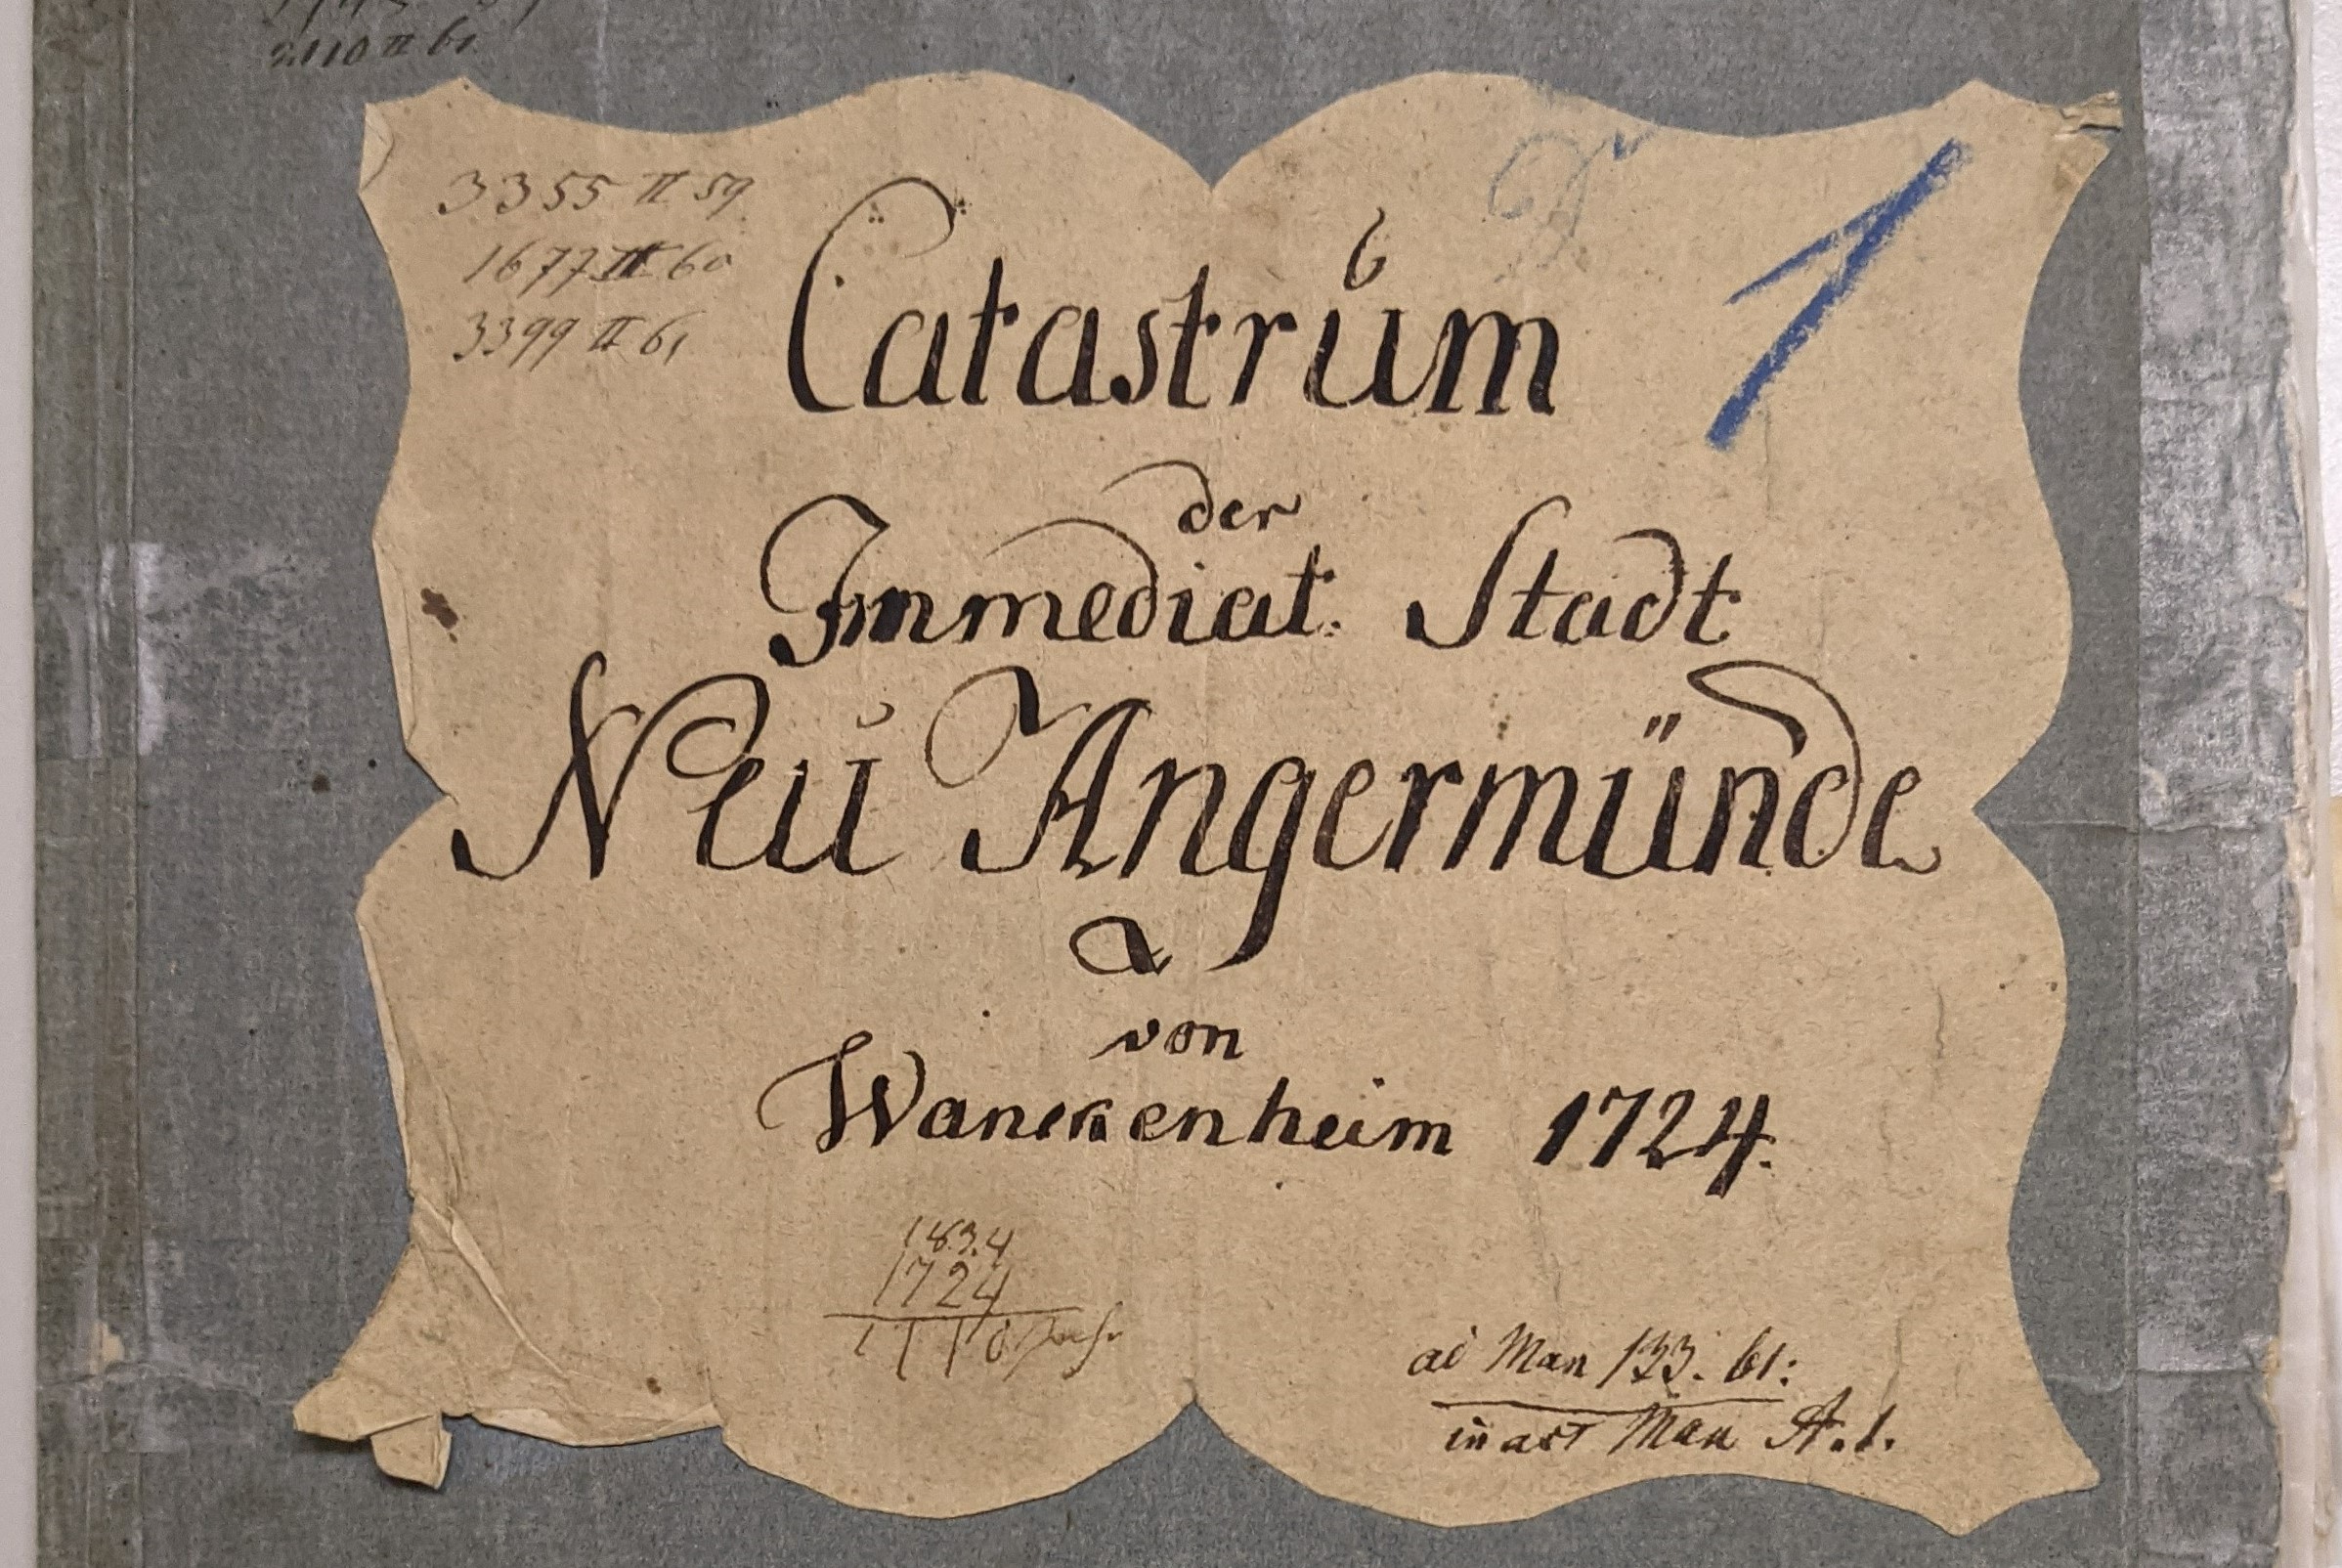 2110 II 61
3355 II 59
1677 II 60
3399 II 61
1
Catastrum
der
Immediat. Stadt
Neu Angermünde
von
Wanckenheim 1724.
1834
1724
1110 Jahr
ad Man 133. 61:
Man A. 1.